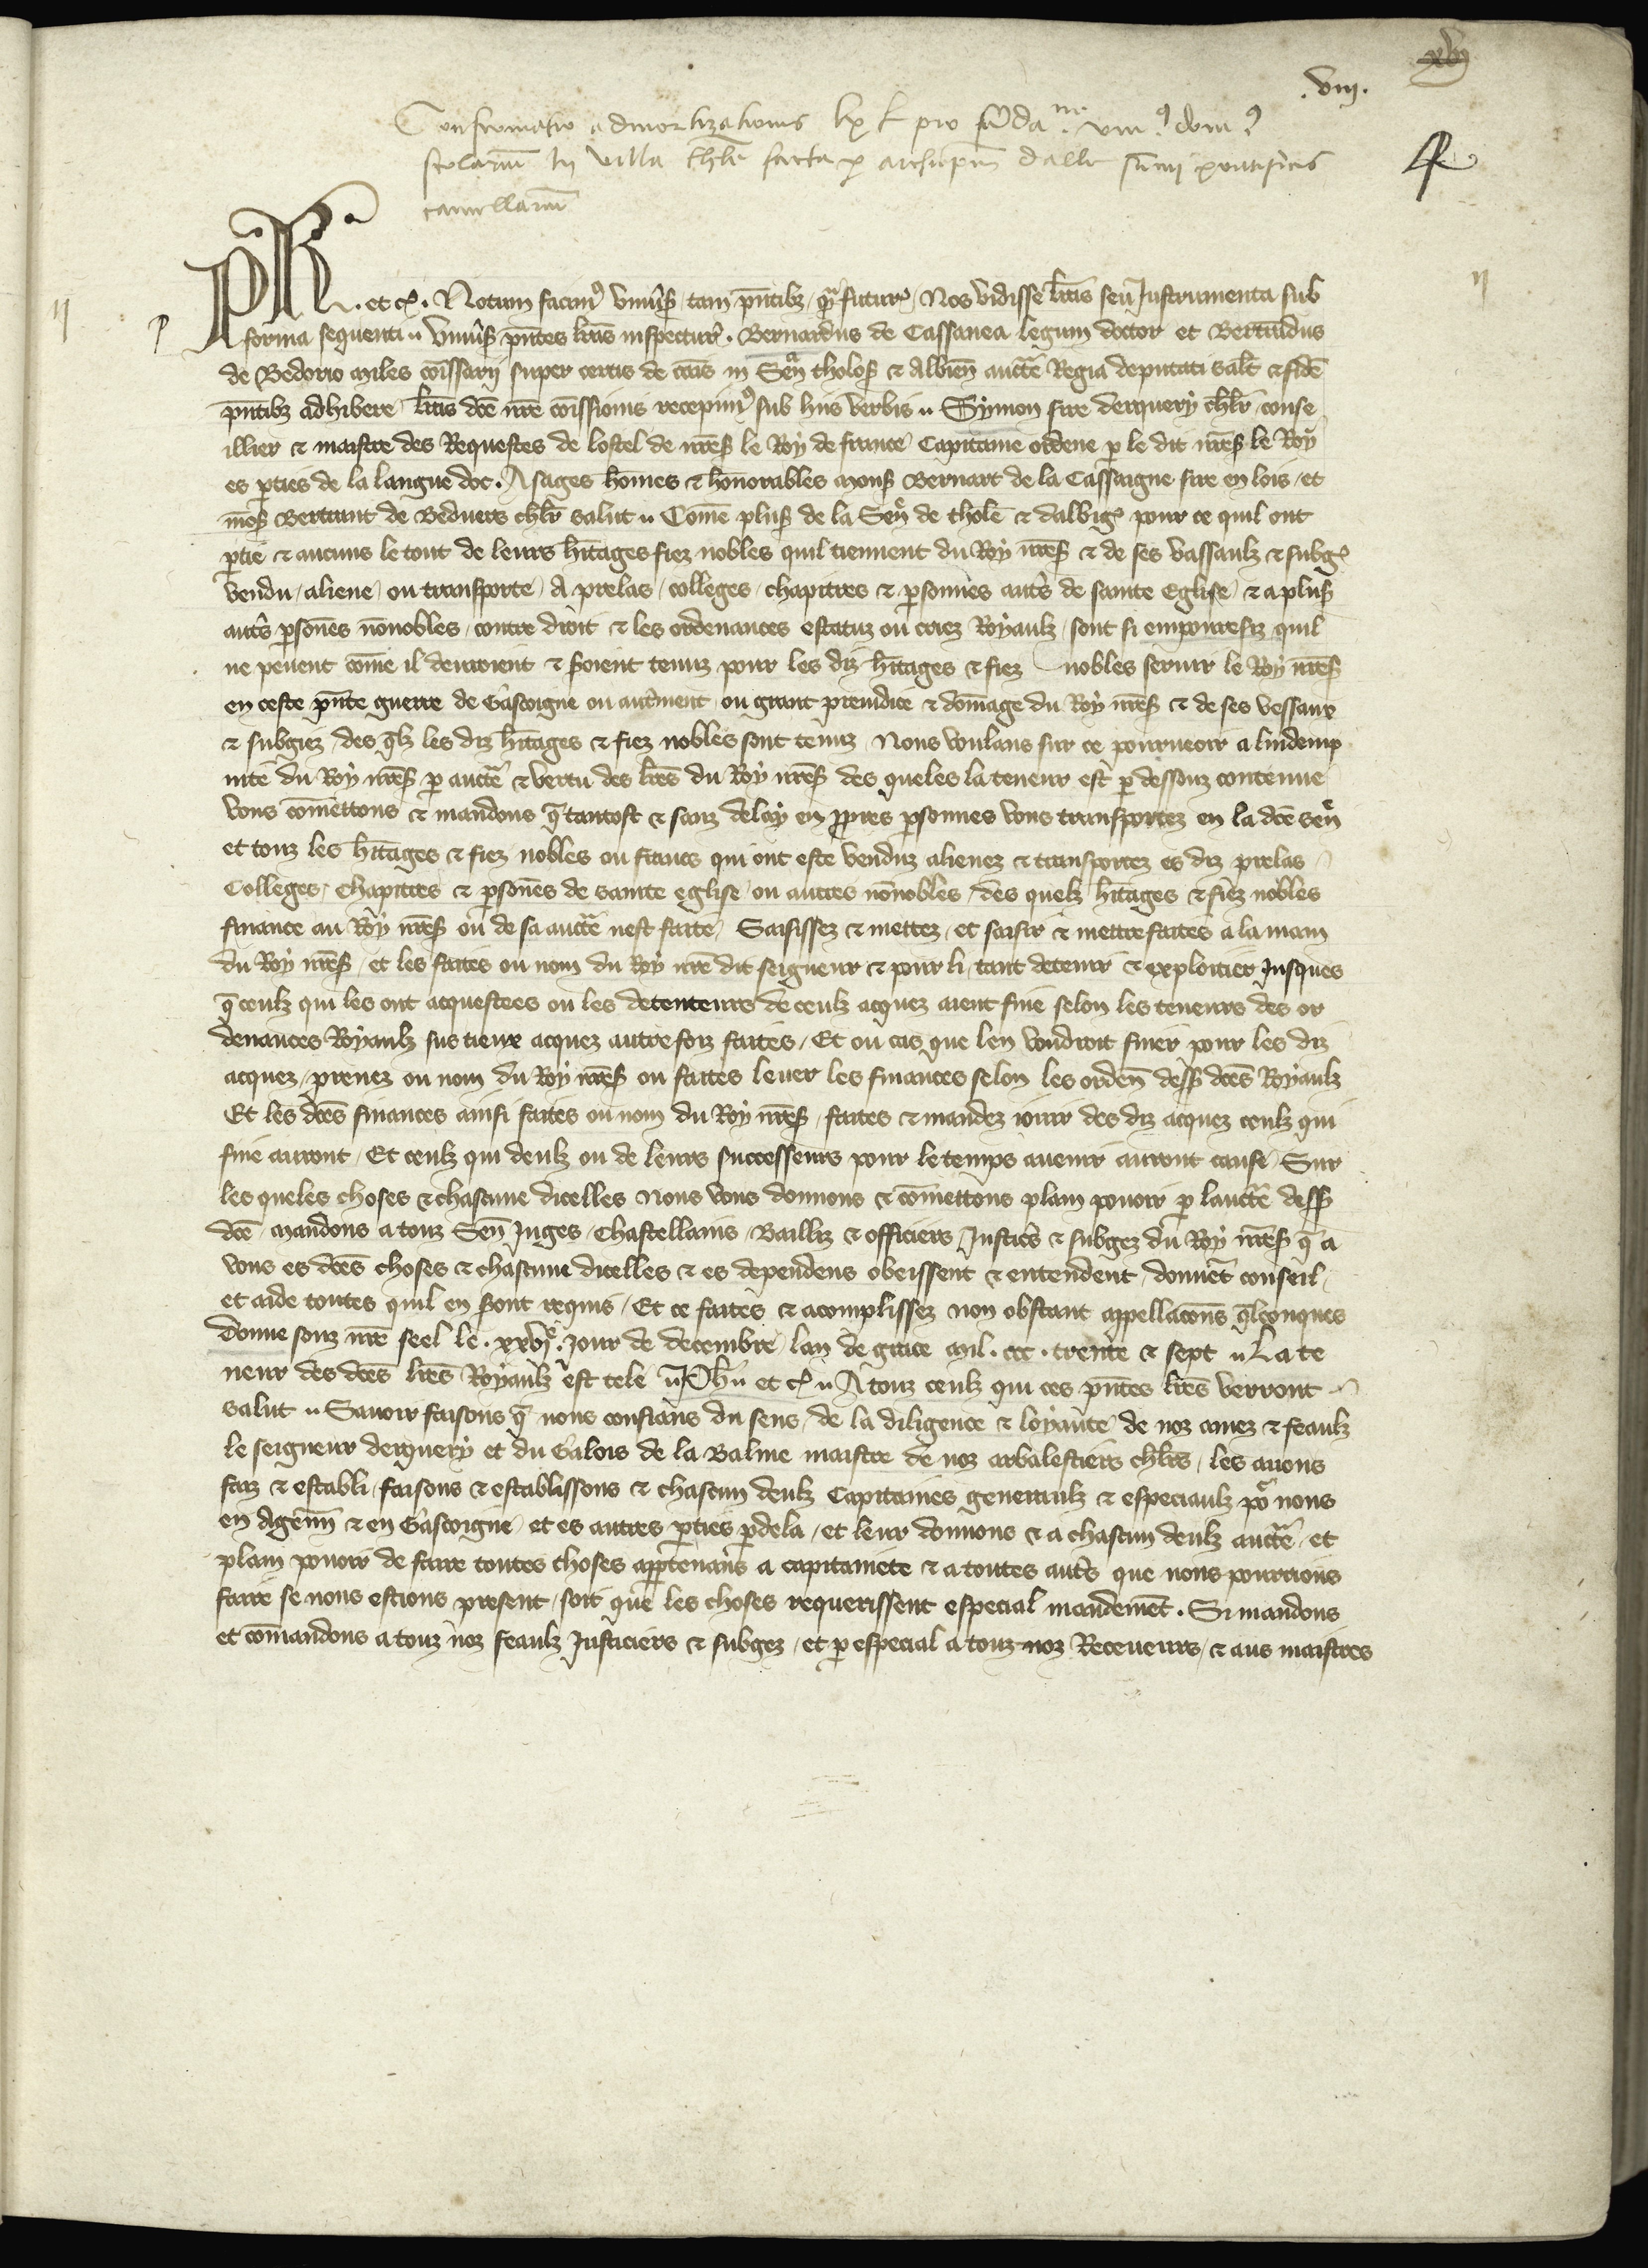 .viii.
Confirmatio admortizationis lx l pro fūda ne uniꝰ domꝰ
scolariū in villa thle facta p archiepm darlē sūmi pontificis
cancellariū
4
II
II
PH. et cͤ. Notum facimꝰ vniūs tam pn̄tibz qͣ futurͥ. Nos vidisse lr̄as seu Instrumenta sub
forma sequenti. Vniūs pn̄tes lr̄as inspecturͥ. Bernardus de Cassanea legum doctor et Bertrandus
de Bedorio miles cōissarij super certis de cāis in Senͣ tholoſ & Albien̄ auctͣe Regia deputati salt̄ & fidē
pn̄tibz adhibere. lr̄as dc̄e nr̄e cōissionis recepimꝰ sub hiis verbis. Symon sire derquery chlr̄ conse
illier & maistre des Requestes de lostel de nr̄eſ le Roy de france Capitaine ordene p le dit nr̄eſ le Roy
es pties de la langue doc. A sages hōmes & honorables monſ Bernart de la Cassaigne sire en lois, et
mōſ Bertrant de Beduers chlr̄ salut. Comē pluſ de la Senͨ de tholē & dalbigͥ pour ce quil ont
ptie & aucuns le tout de leurs hītages fiez nobles quil tiennent du Roy nr̄eſ & de ses vassaulz & subgͥ
vendu, aliene, ou transporte, A prelas, colleges, chapitres & psonnes aut̄s de sainte Eglise, & a pluſ
aut̄s psōnes nōnobles, contre droit & les ordenances estatuz ou criez Royaulz, sont si empouresiz quil
ne peuent cōme il deuroient & s̄oient tenuz pour les diz hītages & fiez nobles seruir le Roy nr̄eſ
en ceste pn̄te guerre de Gascoigne ou aut̄ment, ou grant preiudice & dōmage du Roy nr̄eſ & de ses vessaux
& subgiez, des q̄lz les diz hītages & fiez nobles sont tenuz. Nous voulans sur ce pourueoir a lindemp
nite du Roy nr̄eſ p auctͣe & vertu des lr̄es du Roy nr̄eſ des queles la teneur est p dessouz contenue
vous cōmettons & mandons q̄ tantost & sanz delay en ppres psonnes vous transportez en la dc̄e Senͨ
et touz les hītages & fiez nobles ou francs qui ont este venduz alienez & transportez es diz prelas
Colleges, Chapitres & psōnes de sainte eglise, ou autres nōnobles, des quelz hītages & fiez nobles
finance au Roy nr̄eſ ou de sa auctͣe nest faite, Saisissez & mettez, et saisir & mettre faites a la main
du Roy nr̄eſ, et les faites ou nom du Roy nr̄e dit seigneur & pour li, tant detenir & exploitier Jusques
q̄ ceulz qui les ont acquestees ou les detenteurs de ceulz acquez aient fine selon les teneurs des or
denances Royaulz sus tieux acquez autresfoiz faites, Et ou cas que len voudroit finer pour les diz
acquez, prenez ou nom du Roy nr̄eſ ou faites leuer les finances selon les orden̄ desſ dc̄es Royaulz
Et les dc̄es finances ainsi faites ou nom du Roy nr̄eſ, faites & mandez ioir des diz acquez ceulz qui
fine auront, Et ceulz qui deulz ou de leurs successeurs pour le temps auenir auront cause, Sur
les queles choses & chascune dicelles nous vous donnons & cōmettons plain pouoir p lauctͣe desſ
dc̄e, mandons a touz Sen̄ Juges, Chastellains, Bailliz & officiers, Justic̄s & subgez du Roy nr̄eſ q̄ a
vous es dc̄es choses & chascune dicelles & es dependens obeissent & entendent, donnēt conseil,
et aide toutes quil en s̄ont requis, Et ce faites & acomplissez non obstant appellacōns q̄lconques
donne souz nr̄e seel le .xxvjͤ. Jour de decembre, lan de grace mil. ccc. trente & sept. La te
neur des dc̄es lr̄es Royaulz est tele. Ph̄. et cͤ. A touz ceulz qui ces pn̄tes lr̄es verront
salut. Sauoir faisons q̄ nous confians du sens, de la diligence & loyaute de noz amez & feaulz
le seigneur derquery et du Galois de la Balme maistre de noz arbalestiers chlr̄s, les auons
faiz & establi, faisons & establissons & chascun deulz Capitaines generaulz & especiaulz poͬ nous
en Agen̄n & en Gascoigne, et es autres pties p dela, et leur donnons & a chascun deulz auctͣe, et
plain pouoir de faire toutes choses apptenans a capitainete & a toutes aut̄s que nous pourrions
faire se nous estions present, soit que les choses requerissent especial mandemēt. Si mandons
et cōmandons a touz noz feaulz Justiciers & subgez, et p especial a touz noz Receueurs, & aus maistres